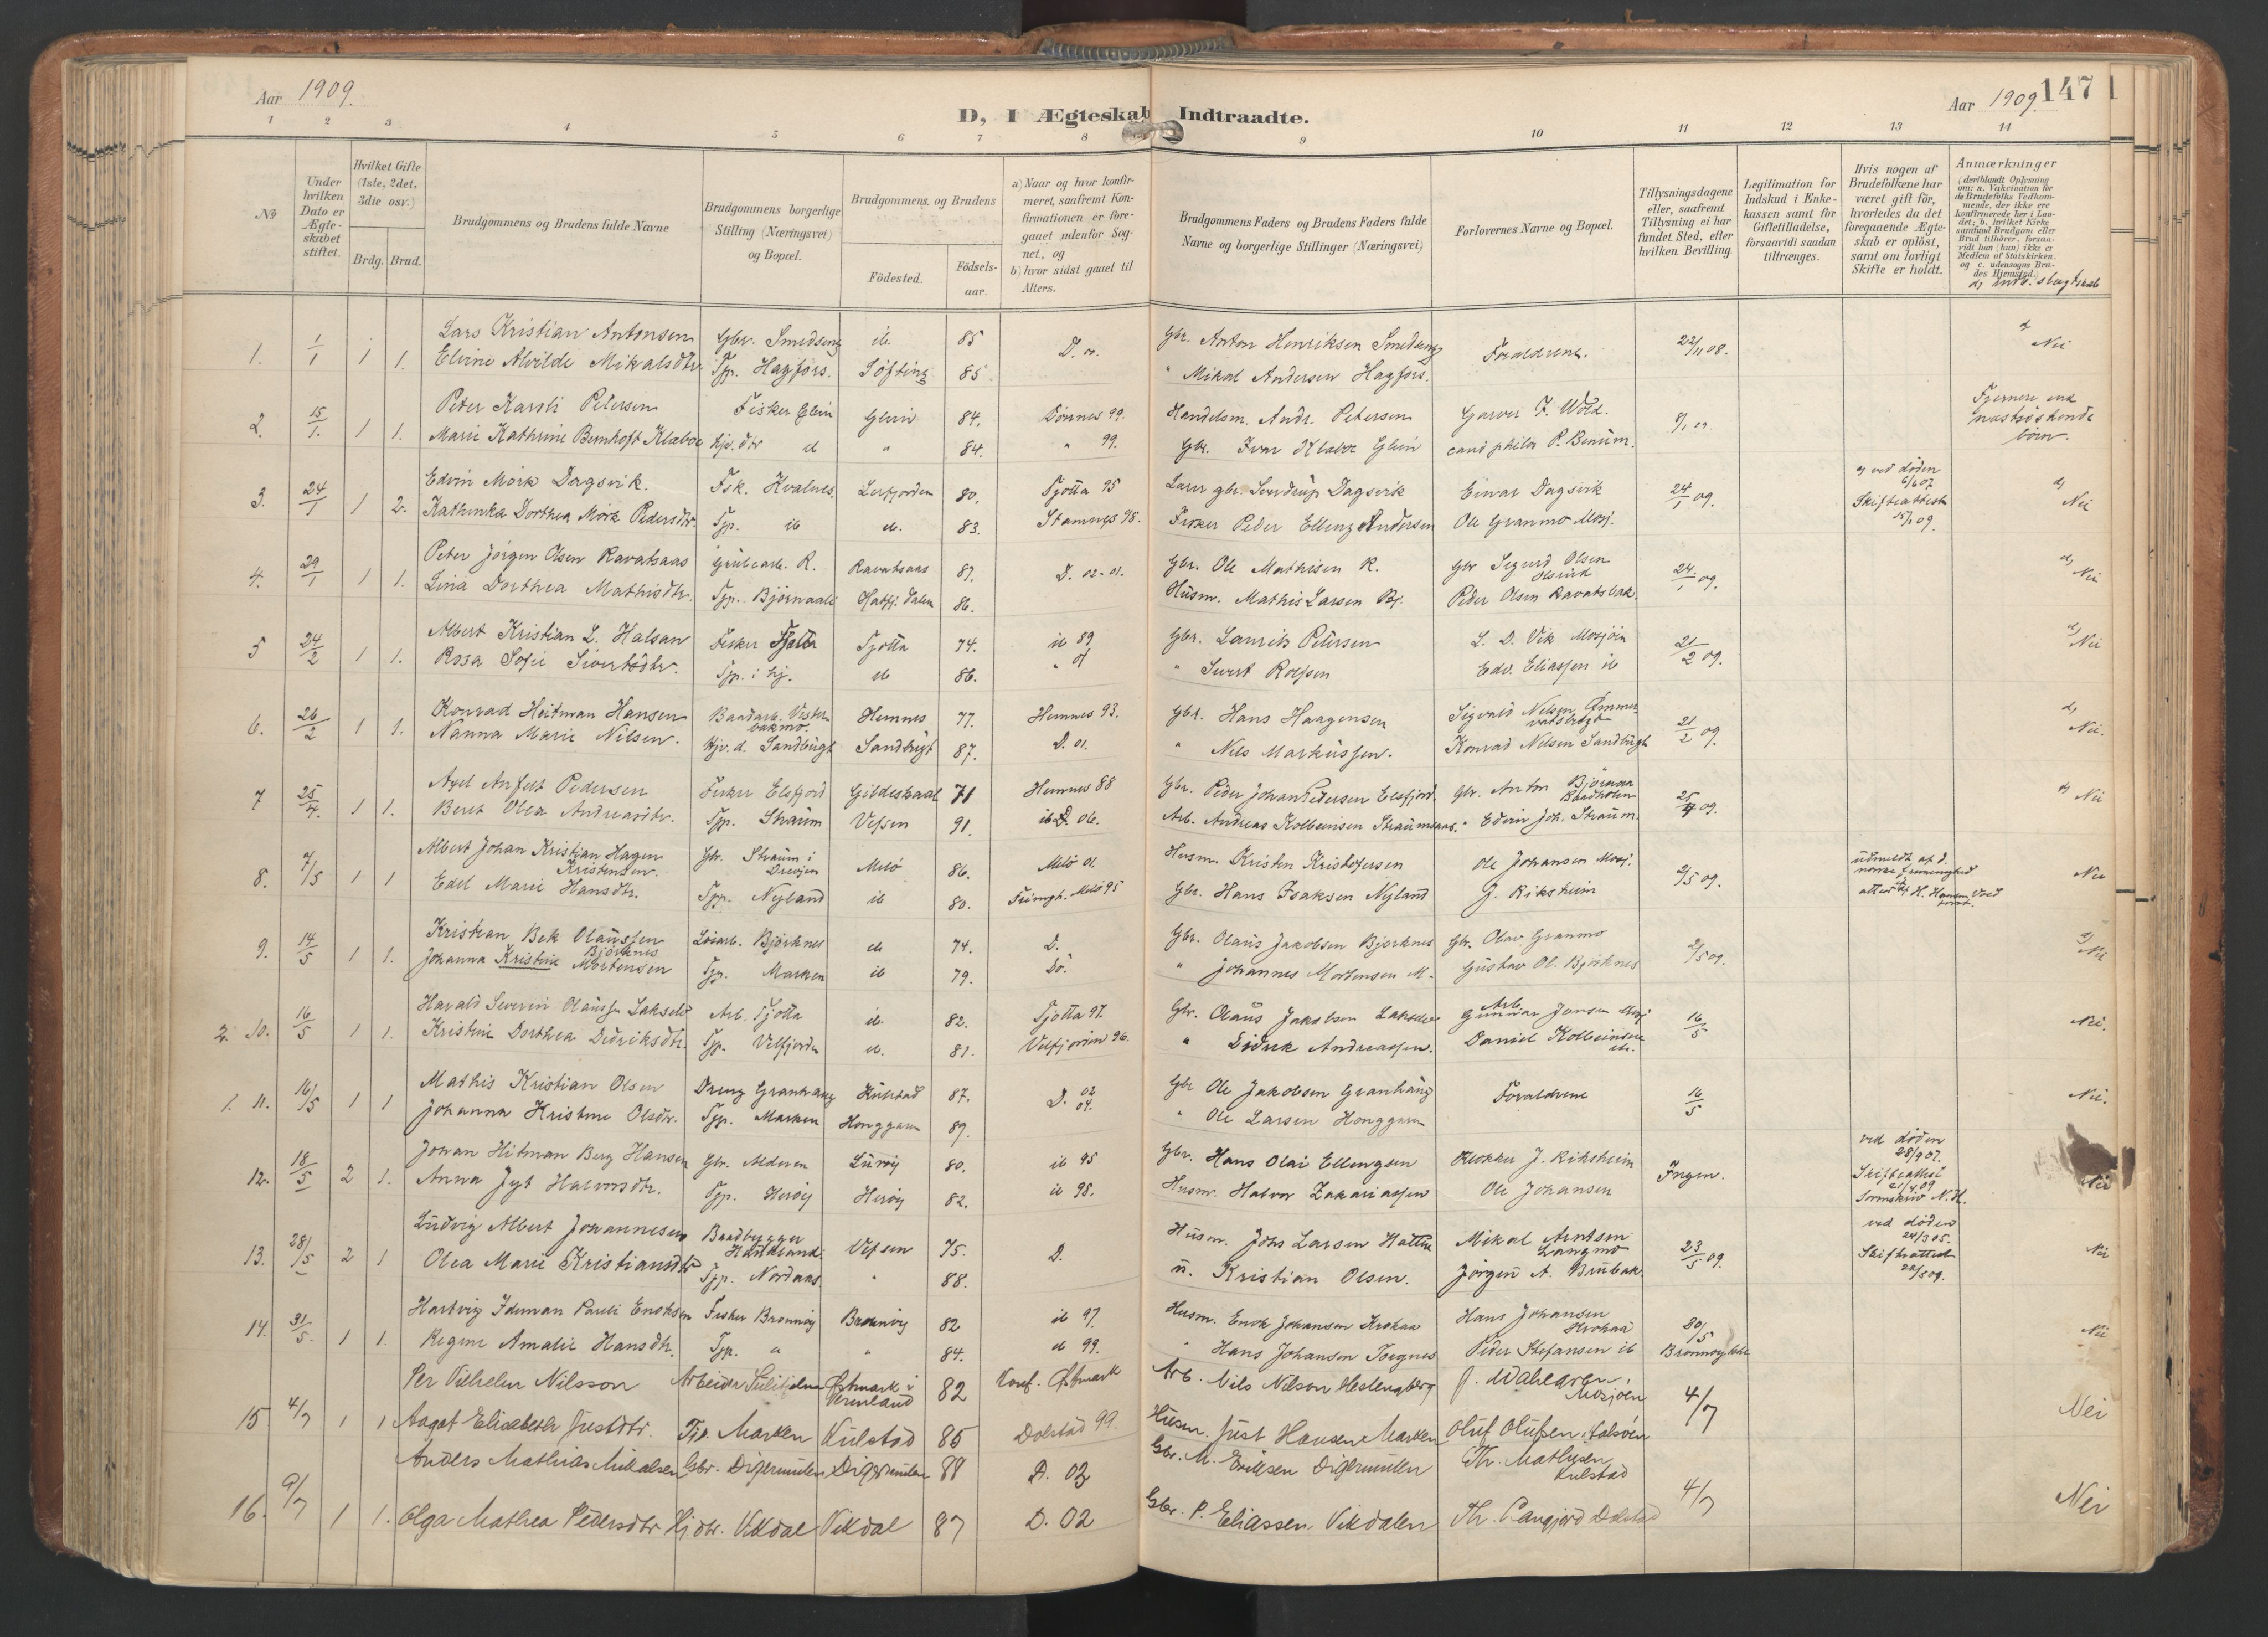 Aar 1909.
D, I Ægteskab Indtraadte.
Aar 1909. 147
1 2 3 4 5 6 7 8 9 10 11 12 13 14
№
Under hvilken Dato er Ægteskabet stiftet.
Hvilket Gifte (1ste, 2det, 3die osv.)
Brdg. Brud.
Brudgommens og Brudens fulde Navne
Brudgommens borgerlige Stilling (Næringsvei) og Bopæl.
Brudgommens og Brudens
Födested.
Födsels-aar.
a) Naar og hvor konfirmeret, saafremt Konfirmationen er foregaaet udenfor Sognet, og
b) hvor sidst gaaet til Alters.
Brudgommens Faders og Brudens Faders fulde Navne og borgerlige Stillinger (Næringsvei)
Forlovernes Navne og Bopæl.
Tillysningsdagene eller, saafremt Tillysning ei har fundet Sted, efter hvilken Bevilling.
Legitimation for Indskud i Enkekassen samt for Giftetilladelse, forsaavidt saadan tiltrænges.
Hvis nogen af Brudefolkene har været gift för, hvorledes da det foregaaende Ægteskab er oplöst, samt om lovligt Skifte er holdt.
Anmærkninger
(deriblandt Oplysning om: a. Vakcination for de Brudefolks Vedkommende, der ikke ere konfirmerede her i Landet; b. hvilket Kirkesamfund Brudgom eller Brud tilhörer, forsaavidt han (hun) ikke er Medlem af Statskirken. og c. udensogns Brudes Hjemsted.)
d) indb. slægtskab
1. 1/1 1 1. Lars Kristian Antonsen Gbr. Smedseng ib 85 D. 00. Gbr. Anton Henriksen Smedseng Forældrene. 22/11 08. d) Nei
Elvine Alvilde Mikalsdtr. Tjp. Hagfors. Söfting 85 " Mikal Andersen Hagfors.
2. 15/1. 1 1. Peter Karoli Petersen Fisker Glein Glein 84. Dönnes 99. Handelsm. Andr. Petersen Garver F. Wold. Fjernere end næstsöskendebörn.
Marie Kathrine Bernhoft Klæboe Hjv. dtr ib " 84. " 99. Gbr. Ivar Klæboe Glein cand philos P. Benum.
3. 24/1 1 2. Edvin Mörk Dagsvik. Fsk. Kvalnes Leirfjorden 80. Tjötta 95 Lærer gbr. Sverdrup Dagsvik Einar Dagsvik 24/1 09. a) ved döden 6/6 07 Skifteattest 15/1 09. d) Nei
Kathinka Dorthea Mörk Pedersdtr. Tjp. ib ib. 83. Stamnes 98. Fisker Peder Elling Andersen Ole Granmo Mosj.
4. 29/1 1 1. Peter Jörgen Olsen Ravatsaas Grubearb. R. Ravatsaas 87. D. 02-01. Gbr. Ole Mathisen R. Gbr Sigurd Olsen 24./1 09. d) Nei
Lina Dorthea Mathisdtr. Tjp. Björnaali Hatfj. dalen 86. Husm. Mathis Larsen Bj. Peder Olsen Ravatsbak.
5 24/2 1 1. Albert Kristian L. Halsan Fisker Tjötta Tjötta 74. ib 89 Gbr. Laurits Petersen L. D. Vik Mosjöen 21/2 09. d) Nei
Rosa Sofie Sivertsdtr. Tjp. i hj. ib 86. " 01 " Sivert Rolfsen Edv. Eliassen ib
6. 26/2 1 1. Konrad Heitman Hansen Baadarb. Vesterbakmo. Hemnes 77. Hemnes 93. Gbr. Hans Haagensen Sigvald Nilsen Ömmervatsbugt 21/2 09. d) Nei.
Nanna Marie Nilsen. Hjv. d. Sandbugt Sandbugt 87. D. 01. " Nils Markussen. Konrad Nilsen Sandbugt
7 25/4. 1 1. Axel Anfelt Pedersen Fisker Elsfjord Gildeskaal 71 Hemnes 88 Gbr. Peder Johan Petersen Elsfjord. Gbr. Anton Björnaa Baadholm 25/4 09. d) Nei
Beret Olea Andreasdtr. Tjp. Straum Vefsen 91. ib D. 06. Arb. Andreas Kolbeinsen Straumsaas. " Edvin Joh. Straum.
8. 2/5 1 1 Albert Johan Kristian Hagen Kristensen. Gbr. Straum i Drevjen Melö 86. Melö 01. Husm. Kristen Kristofersen Ole Johansen Mosj. 2/5 09. udmeldt af d. norske frimenighed Nei
Edel Marie Hansdtr. Tjp. Nyland ib 80. Frimgh. Melö 95 Gbr. Hans Isaksen Nyland J. Riksheim
9. 14/5 1 1. Kristian Bek Olaussen Björknes Löiarb. Björknes ib 74. D. Gbr. Olaus Jakobsen Björknes Gbr. Olav Granmo 2/5 09. d) Nei
Johanna Kristine Mortensen Tjp. Marken ib 79. Do. " Johannes Mortensen M. Gustav Ol. Björknes
2. 10. 16/5 1 1. Harald Severin Olauss. Lakselv Arb. Tjötta ib. 82. Tjötta 97. Gbr. Olaus Jakobsen Lakselv Arb. Gunnar Jansen Mosj 16/5 Nei.
Kristine Dorthea Didriksdtr. Tjp. Velfjorden ib. 81. Velfjorden 96. " Didrik Andreassen. Daniel Kolbeinsen ib.
1. 11. 16/5 1 1 Mathis Kristian Olsen Dreng Granhaug Kulstad 87. D. 02 Gbr Ole Jakobsen Granhaug Forældrene 16/5 Nei.
Johanna Kristine Olsdtr. Tjp. Marken Honggarn 89. 04. " Ole Larsen Honggarn
12. 18/5 2 1. Johan Hitman Berg Hansen Gbr. Alderen Luröy 80. ib 95 Gbr. Hans Olai Ellingsen Klokker J. Riksheim Ingen. ved döden 28/9 07. Skifteattest 21/4 09 Sorenskriv N. H. Nei
Anna Jyt Halvorsdtr. Tjp. Heröy Heröy 82. ib 98. Husm. Halvor Zakariassen Ole Johansen
13. 28/5 2 1 Ludvig Albert Johannesen Baadbygger Vefsen 75. D. Husm. Johs Larsen Hatten Mikal Arntsen Langmo 23/5 09. ved döden 24/3 05. Skifteattest 22/5 09. Nei
Olea Marie Kristiansdtr Tjp. Nordaas " 88. n. Kristian Olsen. Jörgen A. Brubak.
14. 31/5. 1 1. Hartvig Iduman Pauli Enoksen Fisker Brönnöy Brönnöy 82 ib 97. Husm. Enok Johansen Krokaa Hans Johansen Krokaa 30/5 Nei
Regine Amalie Hansdtr. Tjp. " " 84. ib 99. " Hans Johansen Torgnes Peder Stefansen ib Brönnöy kirke
15 4/7 1 1 Per Vilhelm Nilsson Arbeider Sulitjelma Östmark i Vermland 82 Konf. Östmark Arb. Nils Nilson J. Wahlgren, Mosjöen 4/7 Nei
Aagot Elisabeth Justdtr. Tjp. Marken Kulstad 85 Dolstad 99. Husm. Just Hansen Marken Oluf Olufsen, Halsöen
16. 9/7 1 1. Anders Mathias Mikalsen Gbr. Digermulen Digermulen 88 D. 03 Gbr. M. Eriksen Digermulen Th. Mathisen Kulstad 4/7 Nei
Olga Mathea Pedersdtr Hj dtr. Vikdal Vikdal 87 D. 02 Gbr. P. Eliassen Vikdalen Th. Langjord Dolstad